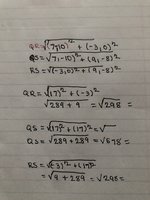 QR=√(7,10)² + (-3,0)²
QS=√(7,-10)² + (9,-8)²
RS=√(-3,0)² + (9,-8)²
QR = √(17)² + (-3)²
√289 + 9 = √298 =
QS = √(17)² + (17)² = √
QS = √289 + 289 = √578 =
RS = √(-3)² + (17)²
= √9 + 289 = √298 =